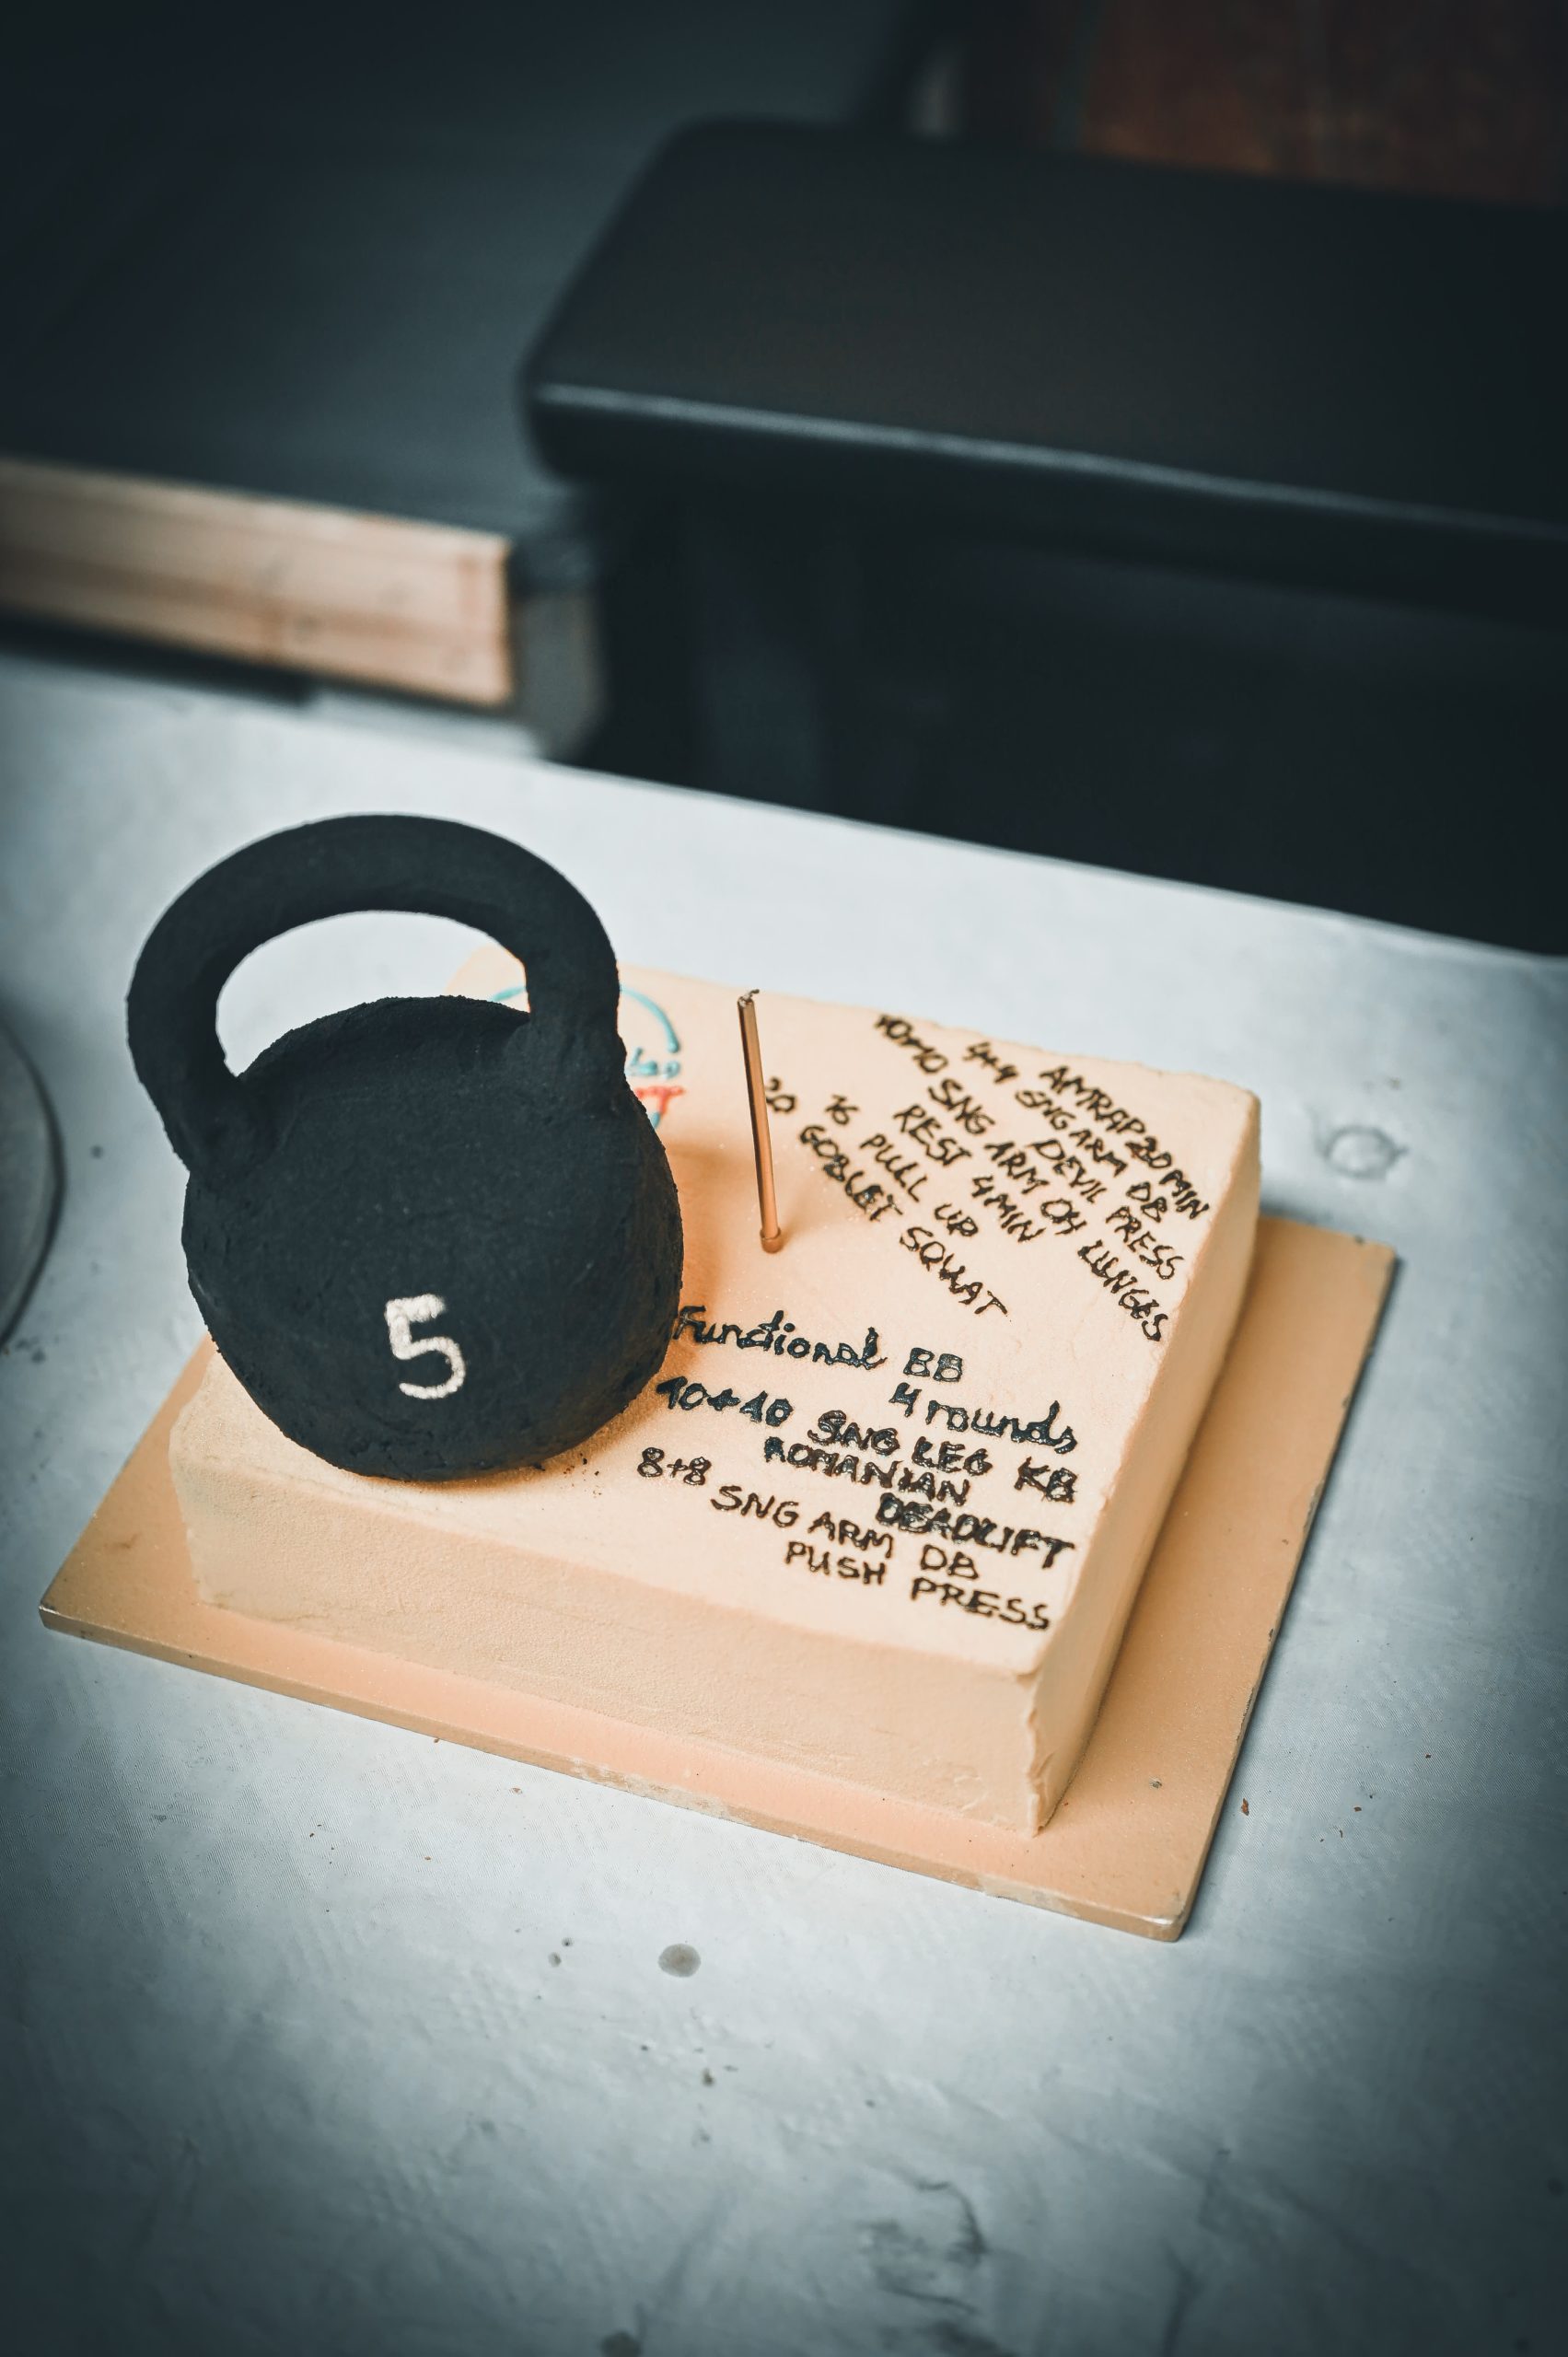 AMRAP 20 MIN
4+4 SNG ARM DB
DEVIL PRESS
10+10 SNG ARM OH LUNGES
REST 4MIN
16 PULL UP
20 GOBLET SQUAT
Functional BB
4 rounds
10+10 SNG LEG KB
ROMANIAN
DEADLIFT
8+8 SNG ARM DB
PUSH PRESS
5